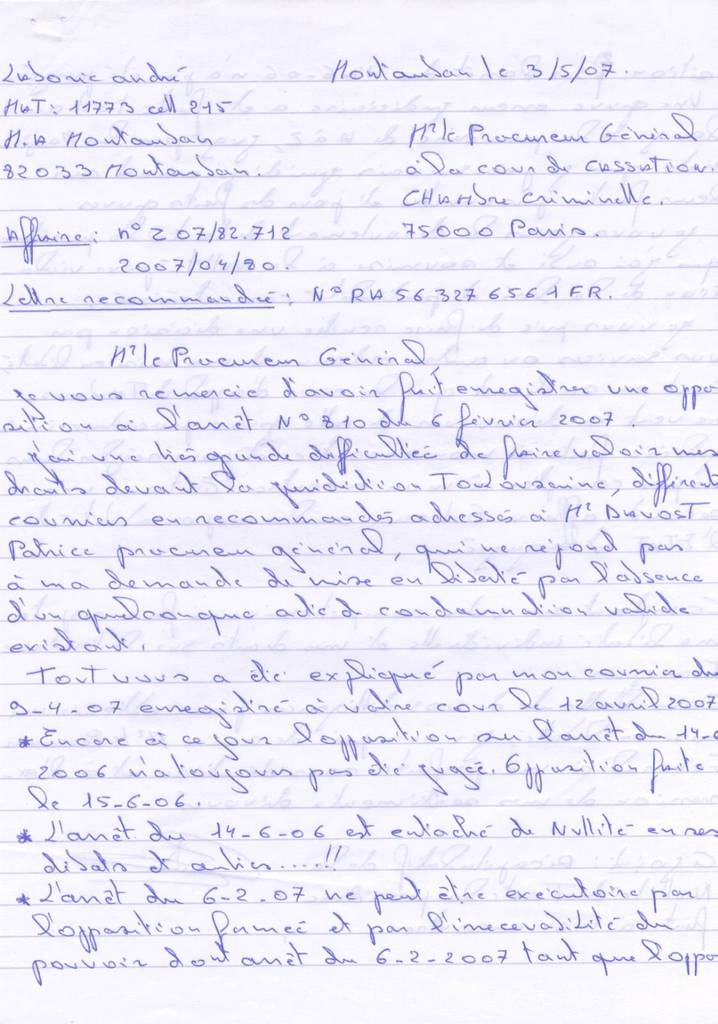 Laborie andré Montauban le 3/5/07.
MAT: 11773 cell 215
M.A Montauban Mr le Procureur Général
82033 Montauban. à la cour de CASSATION.
CHAMbre criminelle.
Affaire: n° Z 07/82.712 75000 Paris.
2007/04/80.
Lettre recommandée: N° RA 56 327 6561 FR.
Mr le Procureur Général
je vous remercie d'avoir fait enregistrer une oppo
sition à l'arrêt N° 810 du 6 février 2007.
j'ai une très grande difficultée de faire valoir mes
droits devant la juridiction Toulousaine, différent
courriers en recommandés adressés à Mr DAVOST
Patrice procureur général, qui ne répond pas
à ma demande de mise en liberté par l'absence
d'un quelconque acte de condamnation valide
existant.
Tout vous a été expliqué par mon courrier du
9-4-07 enregistré à votre cour le 12 avril 2007
* Encore à ce jour l'opposition sur l'arrêt du 14-6
2006 n'a toujours pas été jugée. Opposition faite
le 15-6-06.
* L'arrêt du 14-6-06 est entaché de Nullité en ses
débats et autres.....!!
* L'arrêt du 6-2-07 ne peut être exécutoire par
l'opposition formée et par l'irrecevabilité du
pouvoir dont arrêt du 6-2-2007 tant que l'oppo